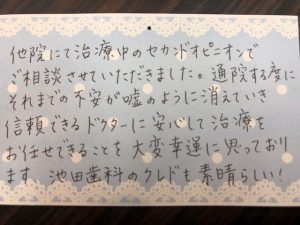 他院にて治療中のセカンドオピニオンで
ご相談させていただきました。通院する度に
それまでの不安が嘘のように消えていき
信頼できるドクターに安心して治療を
お任せできることを大変幸運に思っており
ます。池田歯科のクレドも素晴らしい!